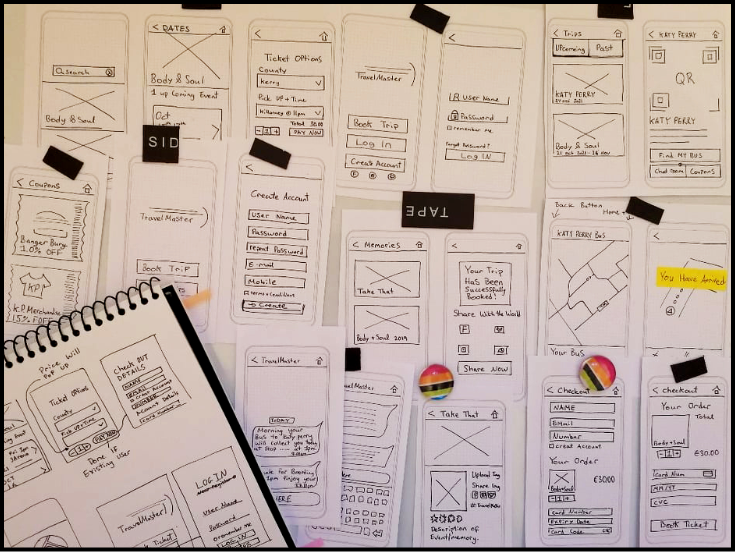 Search
Body & Soul
< DATES
Body & Soul
1 up Coming Event
Oct
Ticket Options
County
Kerry
Pick UP + Time
Killarney @ 11pm
Total 30.00
-1+ PAY NOW
TravelMaster
Book Trip
Log In
Create Account
User Name
Password
remember me
Forgot Password?
LOG IN
< Trips
Upcoming Past
KATY PERRY
Body & Soul
< KATY PERRY
QR
KATY PERRY
Find MY BUS
Chat room Coupons
< Coupons
Banger Bung
10% OFF
KP
K.P. Merchandise
15% OFF
SID
TravelMaster
Book Trip
Create Account
User Name
Password
repeat Password
E-mail
Mobile
Create
TAPE
< Memories
Take That
Body + Soul 2019
Your Trip
Has Been
Successfully
Booked!
Share With the World
Share Now
Back Button
Home
KATY PERRY Bus
Your Bus
You Have Arrived
Price Will
PoP UP
Ticket Options
County
Pick UP + Time
-1+
Done If
Existing User
Check OUT
DETAILS
NAME
EMAIL
NUMBER
TravelMaster
LOG IN
User Name
Password
remember me
< TravelMaster
TODAY
Morning your
Bus to Katy Perry
will collect you today
HERE
TravelMaster
< Take That
Upload Img
Share Img
Description of
Event/memory.
< Checkout
NAME
EMail
Number
creat Account
Your Order
Body+Soul
-1+
€30.00
Card Number
Expiry Date
Card Code
< Checkout
Your Order
Total
Body+Soul
-1+
€30.00
Card Num
MM/YY
CVC
Book Ticket